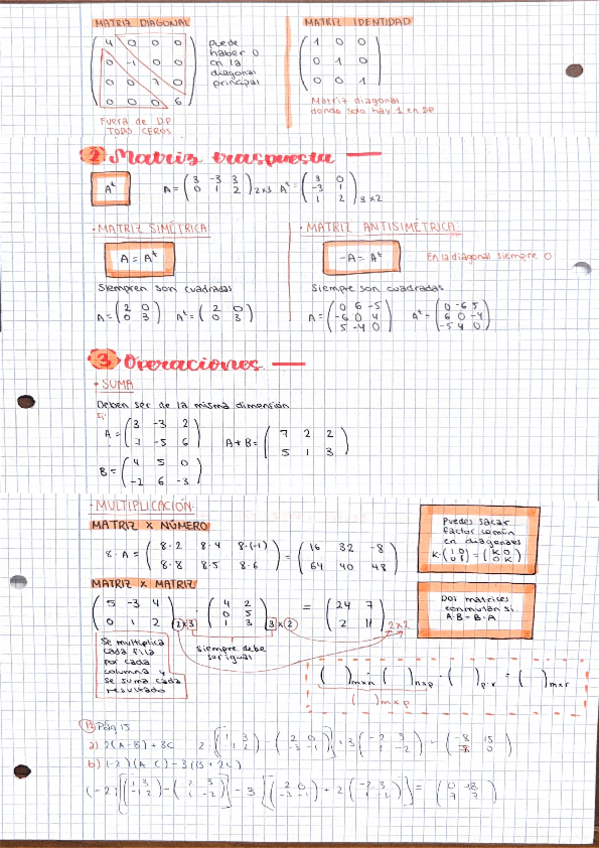 MATRIZ DIAGONAL
4 0 0 0
0 -1 0 0
0 0 7 0
0 0 0 6
puede
haber 0
en la
diagonal
principal
Fuera de DP
TODO CEROS
MATRIZ IDENTIDAD
1 0 0
0 1 0
0 0 1
Matriz diagonal
donde solo hay 1 en DP
2 Matriz traspuesta
Aᵗ
A = ( 3 -3 3 / 0 1 2 ) 2x3 Aᵗ = ( 3 0 / -3 1 / 1 2 ) 3x2
· MATRIZ SIMÉTRICA:
A = Aᵗ
Siempren son cuadradas
A = ( 2 0 / 0 3 ) Aᵗ = ( 2 0 / 0 3 )
· MATRIZ ANTISIMÉTRICA:
-A = Aᵗ
En la diagonal siempre 0
Siempre son cuadradas
A = ( 0 6 -5 / -6 0 4 / 5 -4 0 ) Aᵗ = ( 0 -6 5 / 6 0 -4 / -5 4 0 )
3 Operaciones
· SUMA
Deben ser de la misma dimensión
A = ( 3 -3 2 / -5 6 )
A+B = ( 7 2 2 / 5 1 3 )
B = ( 4 5 0 / -2 6 -3 )
· MULTIPLICACIÓN:
MATRIZ X NÚMERO
8·A = ( 8·2 8·4 8·(-1) / 8·8 8·5 8·6 ) = ( 16 32 -8 / 64 40 48 )
Puedes sacar
factor común
en diagonales
K·( 1 0 / 0 1 ) = ( K 0 / 0 K )
MATRIZ X MATRIZ
( 5 -3 4 / 0 1 2 ) 2x3 · ( 4 2 / 0 5 / 1 3 ) 3x2 = ( 24 7 / 2 11 ) 2x2
Dos matrices
conmutan si
A·B = B·A
Se multiplica
cada fila
por cada
columna y
se suma cada
resultado
Siempre debe
ser igual
( )mxn · ( )nxp · ( )p·r = ( )mxr
( )mxp
Pág 15
a) 2(A-B) + 3C